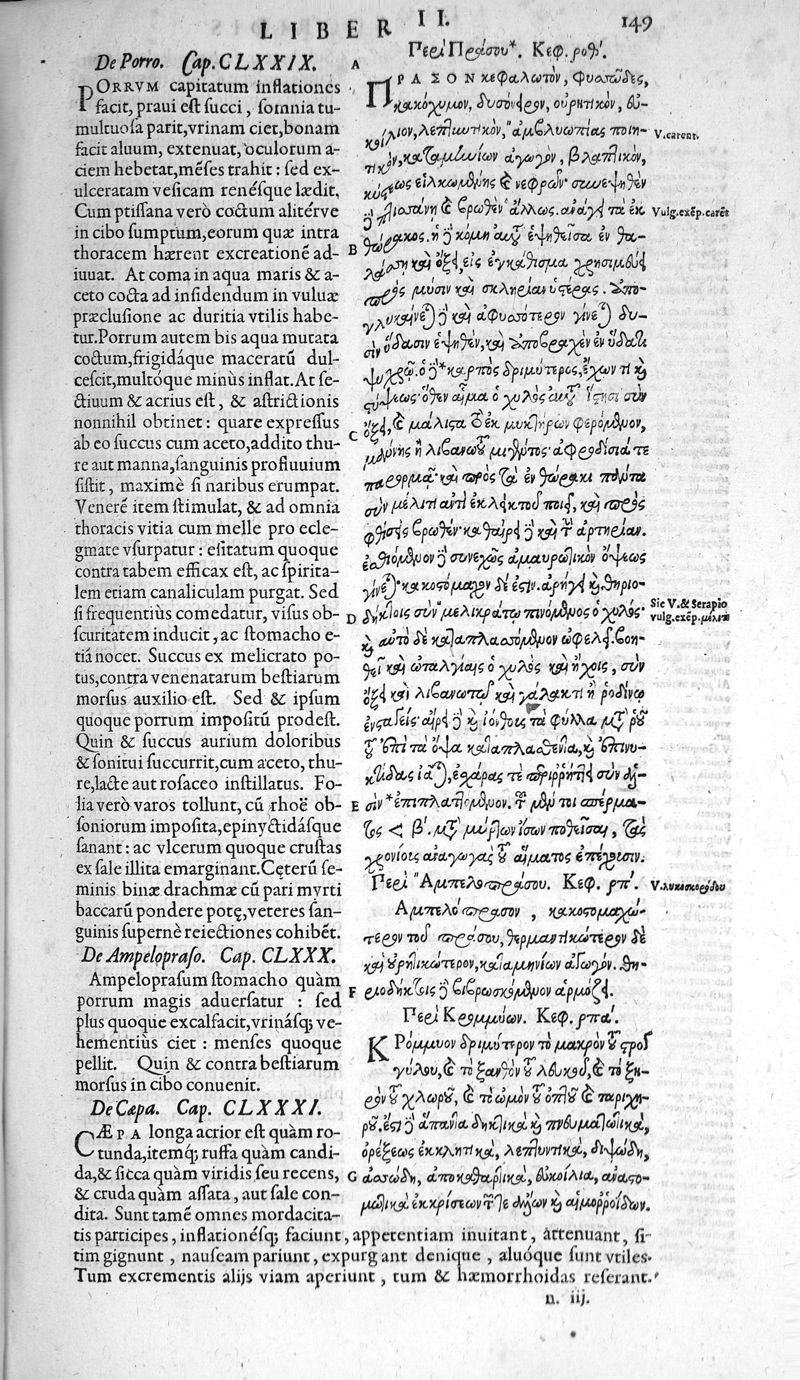 LIBER II. 149
De Porro. Cap. CLXXIX.
PORRVM capitatum inflationes
facit, praui est succi, somnia tu-
multuosa parit, vrinam ciet, bonam
facit aluum, extenuat, oculorum a-
ciem hebetat, mẽses trahit : sed ex-
ulceratam vesicam renésque lædit.
Cum ptissana verò coctum alitérve
in cibo sumptum, eorum quæ intra
thoracem hærent excreationẽ ad-
iuuat. At coma in aqua maris & a-
ceto cocta ad insidendum in vuluæ
præclusione ac duritia vtilis habe-
tur. Porrum autem bis aqua mutata
coctum, frigidáque maceratũ dul-
cescit, multóque minùs inflat. At se-
ctiuum & acrius est, & astrictionis
nonnihil obtinet : quare expressus
ab eo succus cum aceto, addito thu-
re aut manna, sanguinis profluuium
sistit, maximè si naribus erumpat.
Venerẽ item stimulat, & ad omnia
thoracis vitia cum melle pro ecle-
gmate vsurpatur : esitatum quoque
contra tabem efficax est, ac spirita-
lem etiam canaliculam purgat. Sed
si frequentiùs comedatur, visus ob-
scuritatem inducit, ac stomacho e-
tiã nocet. Succus ex melicrato po-
tus, contra venenatarum bestiarum
morsus auxilio est. Sed & ipsum
quoque porrum impositũ prodest.
Quin & succus aurium doloribus
& sonitui succurrit, cum aceto, thu-
re, lacte aut rosaceo instillatus. Fo-
lia verò varos tollunt, cũ rhoë ob-
soniorum imposita, epinyctidásque
sanant : ac vlcerum quoque crustas
ex sale illita emarginant. Cęterũ se-
minis binæ drachmæ cũ pari myrti
baccarũ pondere potę, veteres san-
guinis supernè reiectiones cohibẽt.
De Ampelopraso. Cap. CLXXX.
Ampeloprasum stomacho quàm
porrum magis aduersatur : sed
plus quoque excalfacit, vrinásq; ve-
hementiùs ciet : menses quoque
pellit. Quin & contra bestiarum
morsus in cibo conuenit.
De Cæpa. Cap. CLXXXI.
CÆPA longa acrior est quàm ro-
tunda, itemq; ruffa quàm candi-
da, & sicca quàm viridis seu recens,
& cruda quàm assata, aut sale con-
dita. Sunt tamẽ omnes mordacita-
tis participes, inflationésq; faciunt, appetentiam inuitant, attenuant, si-
tim gignunt, nauseam pariunt, expurgant denique, aluóque sunt vtiles.
Tum excrementis alijs viam aperiunt, tum & hæmorrhoidas reserant.
n. iij.
A
B
C
D
E
F
G
Περὶ Πράσου*. Κεφ. ροθʹ.
ΠΡΑΣΟΝ κεφαλωτὸν, φυσῶδες,
κακόχυμον, δυσόνειρον, οὐρητικὸν, εὐ-
κοίλιον, λεπτυντικὸν, "ἀμβλυωπίας ποιη-
τικὸν, καταμηνίων ἀγωγὸν, βλαπτικὸν,
κύστεως εἱλκωμένης καὶ νεφρῶν· συνεψηθὲν
δὲ πτισάνῃ καὶ βρωθὲν "ἄλλως, ἀνάγει τὰ ἐκ
θώρακος. ἡ δὲ κόμη αὐτοῦ ἑψηθεῖσα ἐν θα-
λάσσῃ καὶ ὄξει, εἰς ἐγκάθισμα χρησιμεύει
πρὸς μύσιν καὶ σκληρίαν ὑστέρας. ἀπο-
γλυκαίνεται δὲ καὶ ἀφυσότερον γίνεται δυ-
σὶν ὕδασιν ἑψηθὲν, καὶ ἀποβραχὲν ἐν ὕδατι
ψυχρῷ. ὁ δὲ* καρπὸς δριμύτερος, ἔχων τι καὶ
στύψεως· ὅθεν αἷμα ὁ χυλὸς αὐτοῦ ἵστησι σὺν
ὄξει, καὶ μάλιστα τὸ ἐκ μυκτήρων φερόμενον,
μάννης ἢ λιβανωτοῦ μιγέντος· ἀφροδίσιά τε
παρορμᾷ· καὶ πρὸς τὰ ἐν θώρακι πάντα
σὺν μέλιτι ἀντὶ ἐκλεικτοῦ ποιεῖ, καὶ πρὸς
φθίσεις βρωθέν· καθαίρει δὲ καὶ τὴν ἀρτηρίαν.
ἐσθιόμενον δὲ συνεχῶς ἀμαυρωτικὸν ὄψεως
γίνεται· κακοστόμαχον δέ ἐστιν. ἀρήγει καὶ θηριο-
δήκτοις σὺν "μελικράτῳ πινόμενος ὁ χυλός·
καὶ αὐτὸ δὲ καταπλασσόμενον ὠφελεῖ. βοη-
θεῖ καὶ ὠταλγίαις ὁ χυλὸς καὶ ἤχοις, σὺν
ὄξει καὶ λιβανωτῷ καὶ γάλακτι ἢ ῥοδίνῳ
ἐνσταγείς· αἴρει δὲ καὶ ἰόνθους τὰ φύλλα μετὰ ῥοῦ
τοῦ ἐπὶ τὰ ὄψα καταπλασθέντα, καὶ ἐπινυ-
κτίδας ἰᾶται, ἐσχάρας τε περιρρήττει σὺν ἁλ-
σὶν *ἐπιπλαττόμενον. τοῦ μέντοι σπέρμα-
τος < βʹ. μετὰ μύρτων ἴσων ποθεῖσαι, τὰς
χρονίους ἀναγωγὰς τοῦ αἵματος ἐπέχουσιν.
Περὶ "Αμπελοπράσου. Κεφ. ρπʹ.
Αμπελόπρασον, κακοστομαχώ-
τερον τοῦ πράσου, θερμαντικώτερον δὲ
καὶ οὐρητικώτερον, καταμηνίων ἀγωγόν. θη-
ριοδήκτοις δὲ βιβρωσκόμενον ἁρμόζει.
Περὶ Κρομμύων. Κεφ. ρπαʹ.
ΚΡόμμυον δριμύτερον τὸ μακρὸν τοῦ στρογ-
γύλου, καὶ τὸ ξανθὸν τοῦ λευκοῦ, καὶ τὸ ξη-
ρὸν τοῦ χλωροῦ, καὶ τὸ ὠμὸν τοῦ ὀπτοῦ καὶ ταριχη-
ροῦ. ἔστι δὲ ἅπαντα δηκτικὰ καὶ πνευματωτικὰ,
ὀρέξεως ἐκκλητικὰ, λεπτυντικὰ, διψώδη,
ἀσώδη, ἀποκαθαρτικὰ, εὐκοίλια, ἀναστο-
μωτικὰ ἐκκρίσεών τε ἄλλων καὶ αἱμορροΐδων.
V. carent.
Vulg. exẽp. carẽt
Sic V. & Serapio
vulg. exẽp. μέλιτι
V. λυκοσκορόδου